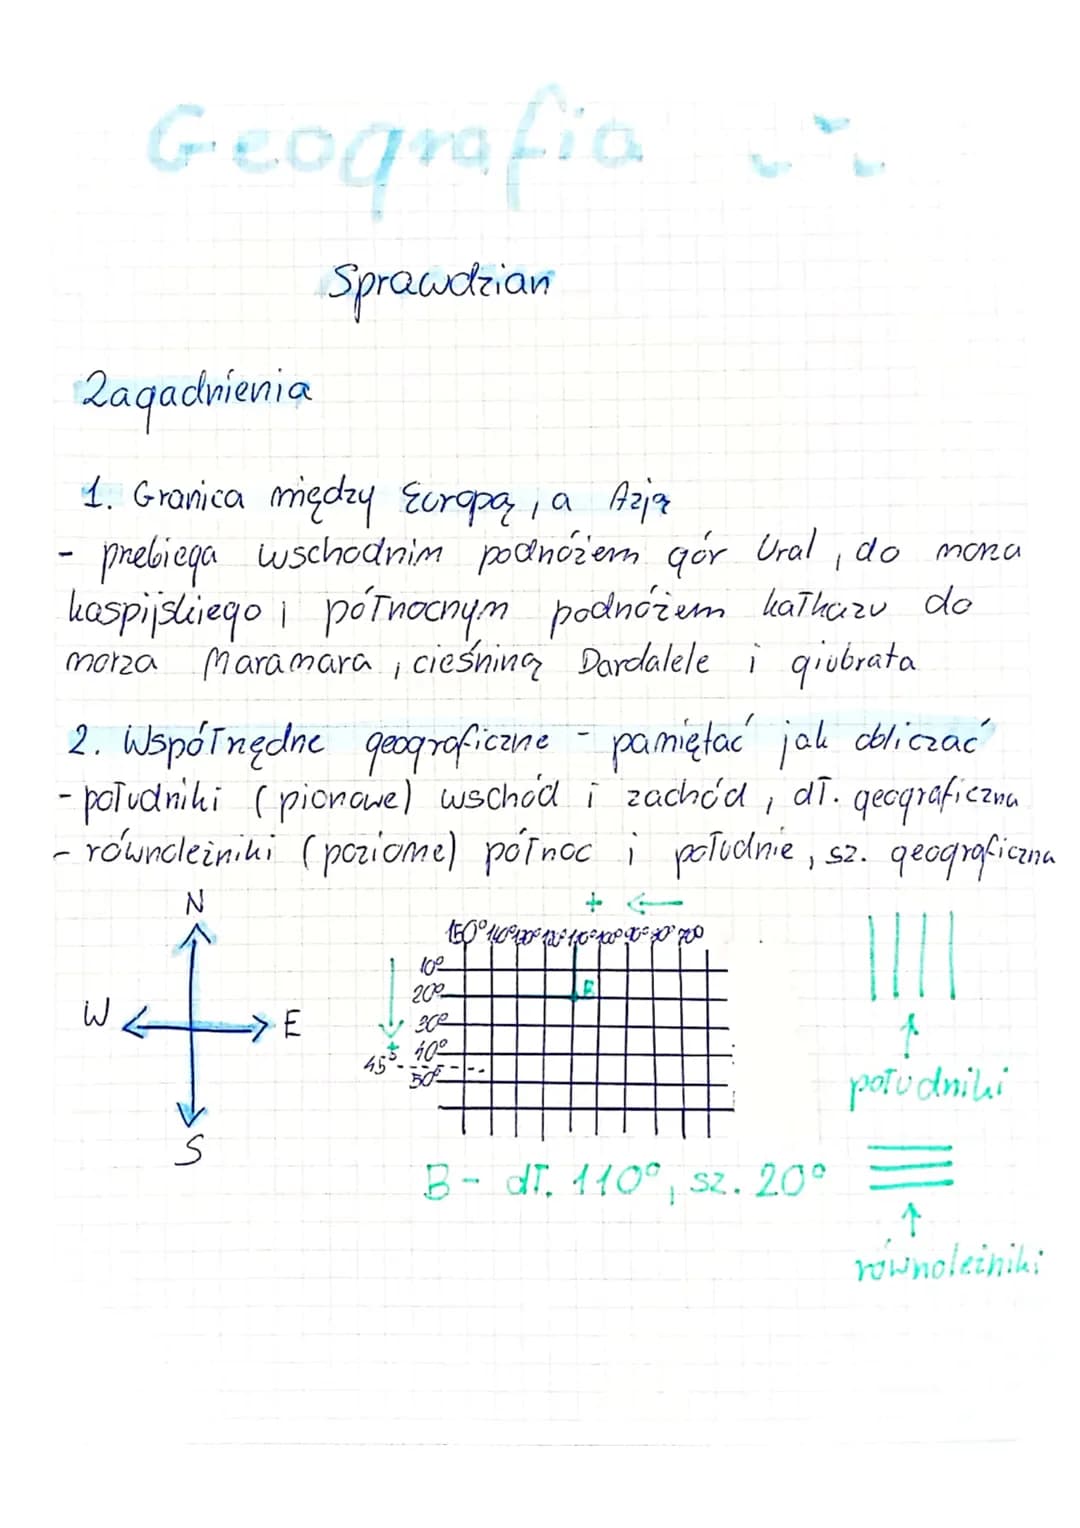 Geografia
Sprawdzian
Zagadnienia
1. Granica między Europą, a Azją
- przebiega wschodnim podnóżem gór Ural, do morza
kaspijskiego i północnym podnóżem kałkazu do
morza Maramara, cieśniną Dardalele i giubrata
2. Współrzędne geograficzne - pamiętać jak obliczać
- południki (pionowe) wschód i zachód, dł. geograficzna
- równoleżniki (poziome) północ i południe, sz. geograficzna
N
W E
S
+ ←
150° 140° 130° 120° 110° 100° 90° 80° 70°
10°
20° B
30°
40°
45°
50°
+
południki
B - dł. 110°, sz. 20°
równoleżniki